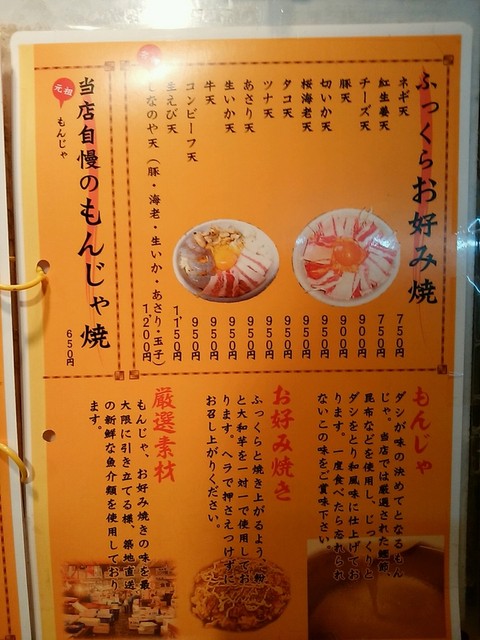 ふっくらお好み焼
ネギ天 750円
紅生姜天 750円
チーズ天 900円
豚天 900円
切いか天 950円
桜海老天 950円
タコ天 950円
ツナ天 950円
あさり天 950円
生いか天 950円
牛天 950円
コンビーフ天 950円
生えび天 1,150円
しなのや天（豚・海老・生いか・あさり・玉子） 1200円
当店自慢のもんじゃ焼
元祖
もんじゃ 650円
もんじゃ
ダシが味の決めてとなるもん
じゃ。当店では厳選された鰹節、
昆布などを使用し、じっくりと
ダシをとり和風味に仕上げてお
ります。一度食べたら忘れられ
ないこの味をご賞味下さい。
お好み焼き
ふっくらと焼き上がるよう、粉
と大和芋を一対一で使用してお
ります。ヘラで押さえつけずに
お召し上がりください。
厳選素材
もんじゃ、お好み焼きの味を最
大限に引き立てる様、築地直送
の新鮮な魚介類を使用しており
ます。